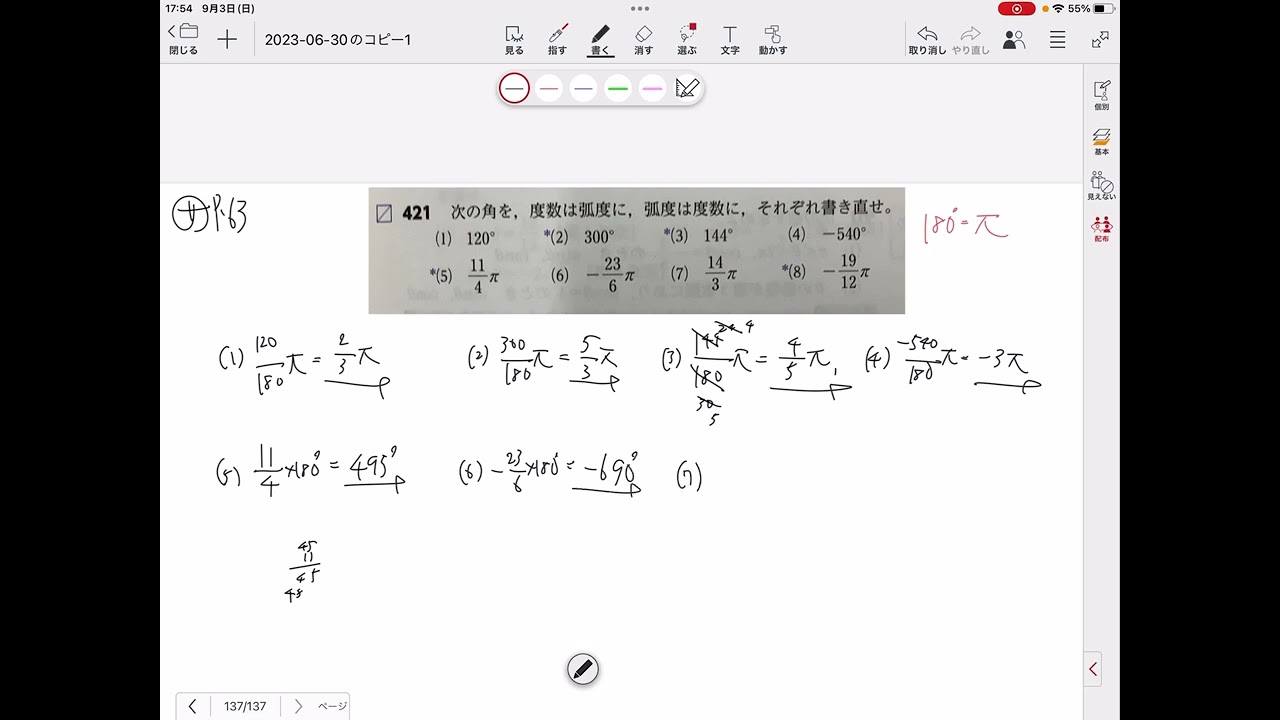 17:54 9月3日(日)
55%
閉じる
2023-06-30のコピー1
見る 指す 書く 消す 選ぶ 文字 動かす
取り消し やり直し
個別
基本
見えない
配布
サ P.63
421 次の角を,度数は弧度に,弧度は度数に,それぞれ書き直せ。
(1) 120° *(2) 300° *(3) 144° (4) −540°
*(5) 11/4 π (6) −23/6 π (7) 14/3 π *(8) −19/12 π
180°=π
(1) 120/180 π = 2/3 π (2) 300/180 π = 5/3 π (3) 144/180 π = 4/5 π (4) −540/180 π = −3π
24 4
30
5
(5) 11/4 ×180° = 495° (6) −23/6 ×180° = −690° (7)
45
11
45
45
137/137 ページ